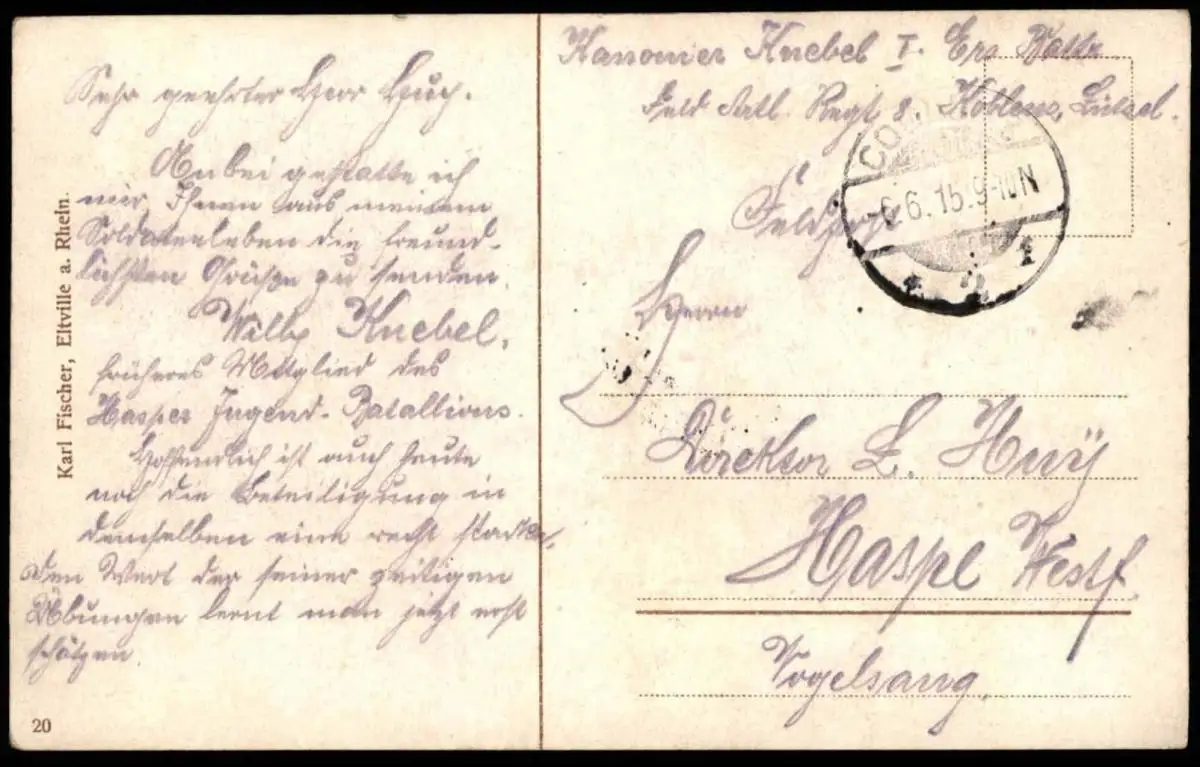 Sehr geehrter Herr Huÿ.
Anbei gestatte ich
mir, Ihnen aus meinem
Soldatenleben die freund-
lichsten Grüße zu senden.
Willy Knebel,
früheres Mitglied des
Hasper Jugend-Batallions.
Hoffentlich ist auch heute
noch die Beteiligung in
demselben eine recht starke,
den Wert der seiner zeitigen
Übungen lernt man jetzt erst
schätzen.
Karl Fischer, Eltville a. Rhein.
20
Kanonier Knebel I. Ers. Battr.
Feld Artl. Regt 8. Koblenz, Lützel.
Feldpost
6.6.15.9-10N
Herrn
Direktor L. Huÿ
Haspe Westf.
Vogelsang.